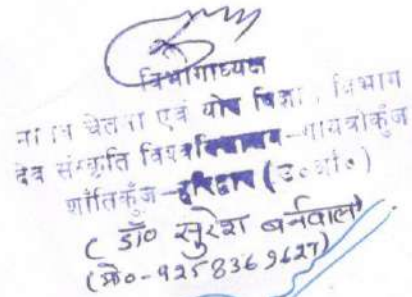 विभागाध्यक्ष
मानव चेतना एवं योग विज्ञान विभाग
देव संस्कृति विश्वविद्यालय-गायत्रीकुँज
शाँतिकुँज-हरिद्वार (उ०आं०)
( डॉ० सुरेश बर्नवाल)
(मो०-9258369627)